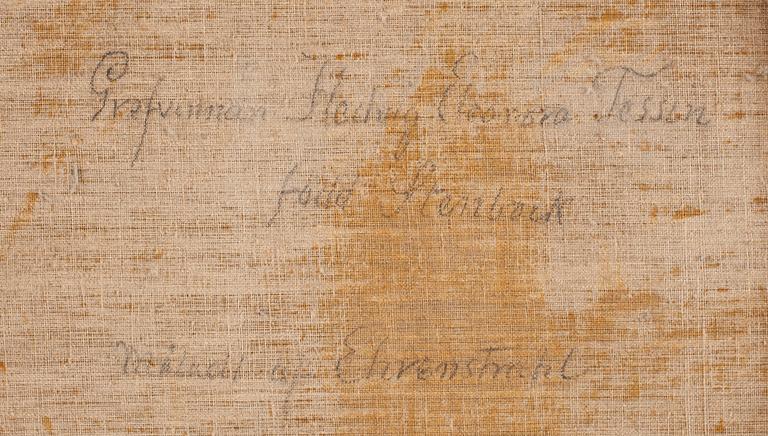 Grefvinnan Hedvig Eleonora Tessin
född Stenbock
Målad af Ehrenstrahl